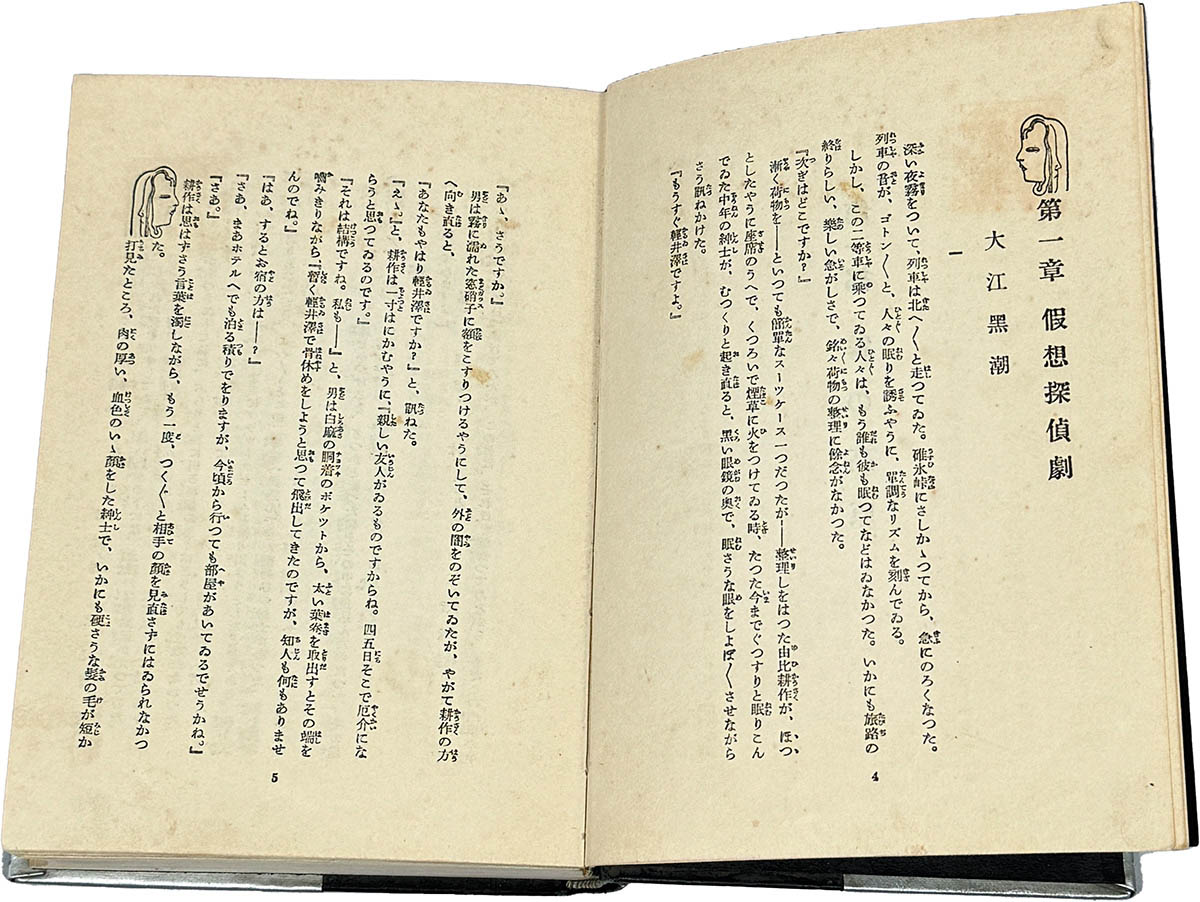 第一章 假想探偵劇
大江黑潮
一
深い夜霧をついて、列車は北へ〱と走つてゐた。碓氷峠にさしかゝつてから、急にのろくなつた。
列車の音が、ゴトン〱と、人々の眠りを誘ふやうに、單調なリズムを刻んでゐる。
しかし、この二等車に乘つてゐる人々は、もう誰も彼も眠つてなどはゐなかつた。いかにも旅路の
終りらしい、樂しい急がしさで、銘々荷物の整理に餘念がなかつた。
『次ぎはどこですか？』
漸く荷物を――といつても簡單なスーツケース一つだつたが――整理しをはつた由比耕作が、ほつ
としたやうに座席のうへで、くつろいで煙草に火をつけてゐる時、たつた今までぐつすりと眠りこん
でゐた中年の紳士が、むつくりと起き直ると、黑い眼鏡の奥で、眠さうな眼をしよぼ〱させながら
さう訊ねかけた。
『もうすぐ輕井澤ですよ。』
4
『あゝ、さうですか。』
男は霧に濡れた窓硝子に額をこすりつけるやうにして、外の闇をのぞいてゐたが、やがて耕作の方
へ向き直ると、
『あなたもやはり輕井澤ですか？』と、訊ねた。
『えゝ。』と、耕作は一寸はにかむやうに、『親しい友人がゐるものですからね。四五日そこで厄介にな
らうと思つてゐるのです。』
『それは結構ですね。私も――』と、男は白麻の胴着のポケットから、太い葉卷を取出すとその端を
嚙みきりながら、『暫く輕井澤で骨休めをしようと思つて飛出してきたのですが、知人も何もありませ
んのでね。』
『はあ、するとお宿の方は――？』
『さあ、まあホテルへでも泊る積りでをりますが、今頃から行つても部屋があいてゐるでせうかね。』
『さあ。』
耕作は思はずさう言葉を濁しながら、もう一度、つく〲と相手の顏を見直さずにはゐられなかつ
た。
打見たところ、肉の厚い、血色のいゝ顏をした紳士で、いかにも硬さうな髮の毛が短か
5